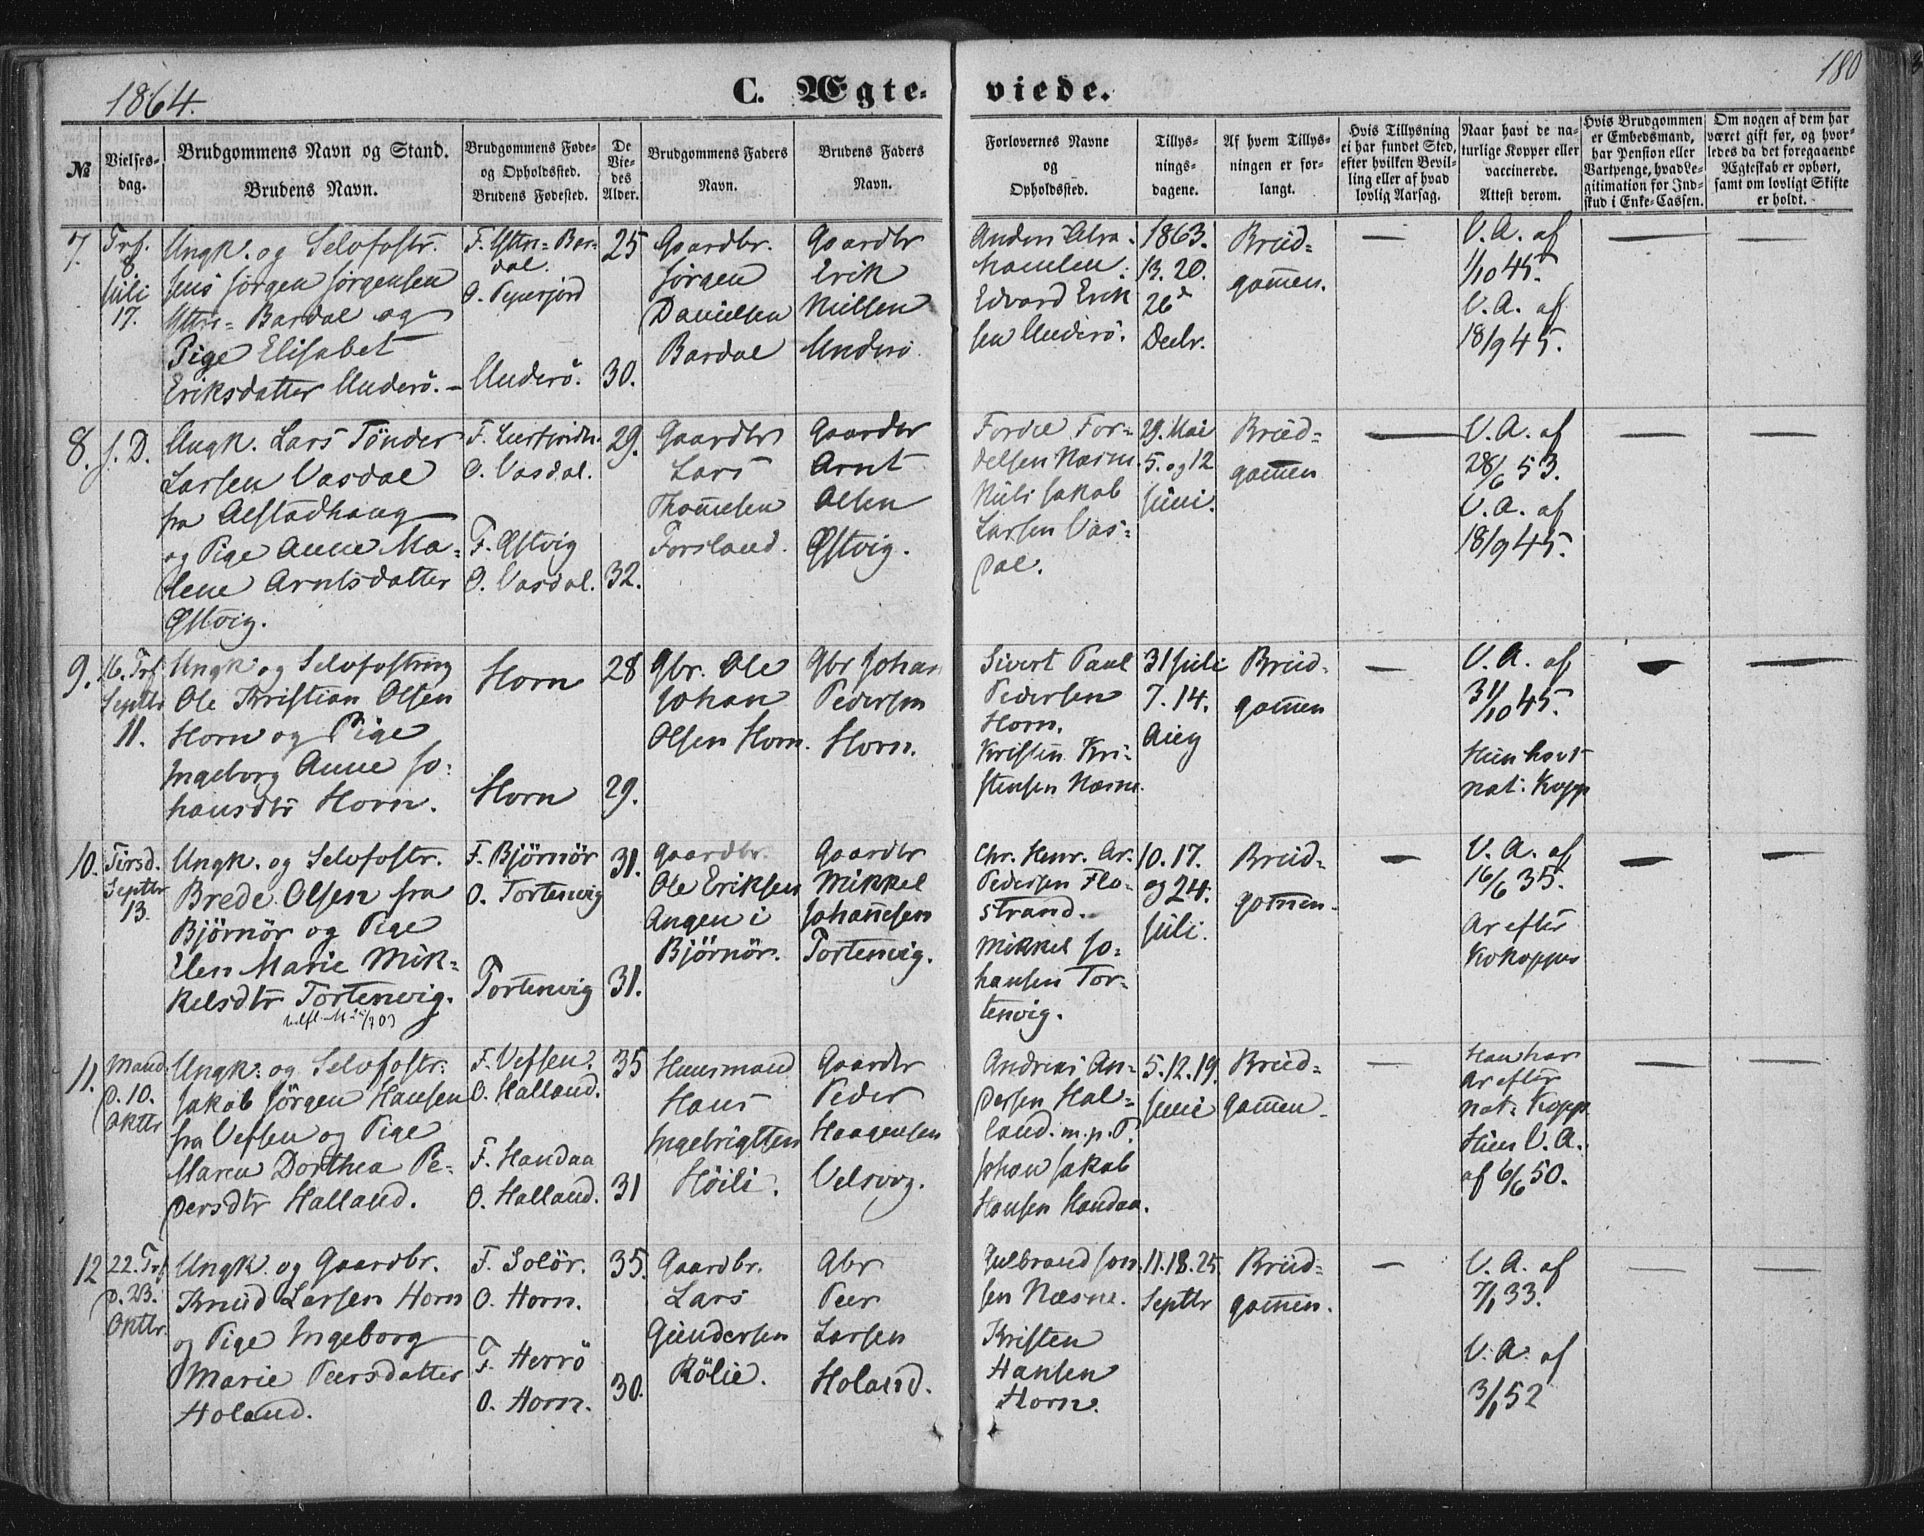 1864.
C. Ægte-
viede.
180
№
Vielses-
dag.
Brudgommens Navn og Stand.
Brudens Navn.
Brudgommens Føde-
og Opholdssted.
Brudens Fødested.
De
Vie-
des
Alder.
Brudgommens Faders
Navn.
Brudens Faders
Navn.
Forlovernes Navne
og
Opholdssted.
Tillys-
nings-
dagene.
Af hvem Tillys-
ningen er for-
langt.
Hvis Tillysning
ei har fundet Sted,
efter hvilken Bevil-
ling eller af hvad
lovlig Aarsag.
Naar havt de na-
turlige Kopper eller
vaccinerede.
Attest derom.
Hvis Brudgommen
er Embedsmand,
har Pension eller
Vartpenge, hvad Le-
gitimation for Ind-
skud i Enke-Cassen.
Om nogen af dem har
været gift før, og hvor-
ledes da det foregaaende
Ægteskab er ophørt,
samt om lovligt Skifte
er holdt.
7.
Trf.
8
Juli
17.
Ungk. og Selvfostr.
Jens Jörgen Jörgensen
Ytre-Bardal og
Pige Elisabet
Eriksdatter Underö.
F. Yttre-Bar-
dal.
O.
Underö.
25
30.
Gaardbr.
Jörgen
Danielsen
Bardal
Gaardbr
Erik
Nielsen
Underö
Anders Abra-
hamsen
Edvard Erik
sen Underö.
1863.
13. 20.
26de
Decbr.
Brüd-
gomen.
V. A. af
1/10 45.
V. A. af
18/9 45.
8.
f. D.
Ungk. Lars Tönder
Larsen Vasdal
fra Alstadhaug
og Pige Anne Ma-
lene Arntsdatter
Østvig.
F.
O. Vasdal.
F. Østvig
O. Vasdal.
29.
32.
Gaardbr
Lars
Thomesen
Forsland.
Gaardbr
Arnt
Olsen
Østvig.
Fordel For-
delsen Næsne.
Nils Jakob
Larsen Vas-
dal.
29. Mai
5. og 12
Juni.
Brüd-
gomen
V. A. af
28/6 53.
V. A. af
18/9 45.
9.
16. Trf
Septbr
11.
Ungk og Selvfostring
Ole Kristian Olsen
Horn og Pige
Ingeborg Anne Jo-
hansdtr Horn.
Horn
Horn
28
29.
Gbr. Ole
Johan
Olsen Horn.
Gbr Johan
Pedersen
Horn.
Sivert Paul
Pedersen
Horn.
Kristen Kri-
stensen Næsne.
31 Juli
7. 14.
Aug
Brüd-
gomen
V. A. af
31/10 45.
Hun havt
nat: Kopp
10.
Tirsd.
Septbr
13.
Ungk. og Selvfostr.
Brede Olsen fra
Björnör og Pige
Elen Marie Mik-
kelsdtr Tortenvig.
F. Björnör
O. Tortenvig
Tortenvig
31.
31.
Gaardbr.
Ole Eriksen
Angen i
Björnör.
Gaardbr
Mikkel
Johannesen
Tortenvig.
Chr. Henr. Ar.
Pedersen Flo-
strand.
Mikkel Jo-
hansen Tor-
tenvig.
10. 17.
og 24.
Juli.
Brüd-
gomen.
V. A. af
16/6 35.
Ar efter
Kokopper
11.
Mand.
d. 10.
Oktbr
Ungk. og Selvfostr.
Jakob Jörgen Hansen
fra Vefsen og Pige
Maren Dorthea Pe-
dersdtr Halland.
F. Vefsen.
O. Halland.
F. Handaa
O. Halland.
35
31
Huusmand
Hans
Ingebrigtsen
Höili.
Gaardbr
Peder
Haagensen
Velsvig.
Andreas An-
dersen Hal-
land. m. p. P.
Johan Jakob
Hansen Handaa.
5. 12. 19.
Juni
Brüd-
gomen.
Han har
Ar efter
nat: Kopp
Hun V. A.
af 6/6 50.
12
22. Trf
d. 23.
Oktbr.
Ungk. og Gaardbr.
Knud Larsen Horn
og Pige Ingeborg
Marie Peersdatter
Holand.
F. Solör.
O. Horn.
F. Herrö
O. Horn.
35.
30.
Gaardbr.
Lars
Gundersen
Rölie.
Gbr
Peer
Larsen
Holand.
Gulbrand Jon
sen Næsne.
Kristen
Hansen
Horn.
11. 18. 25.
Septbr
Brüd-
gomen.
V. A. af
7/1 33.
V. A. af
3/1 52